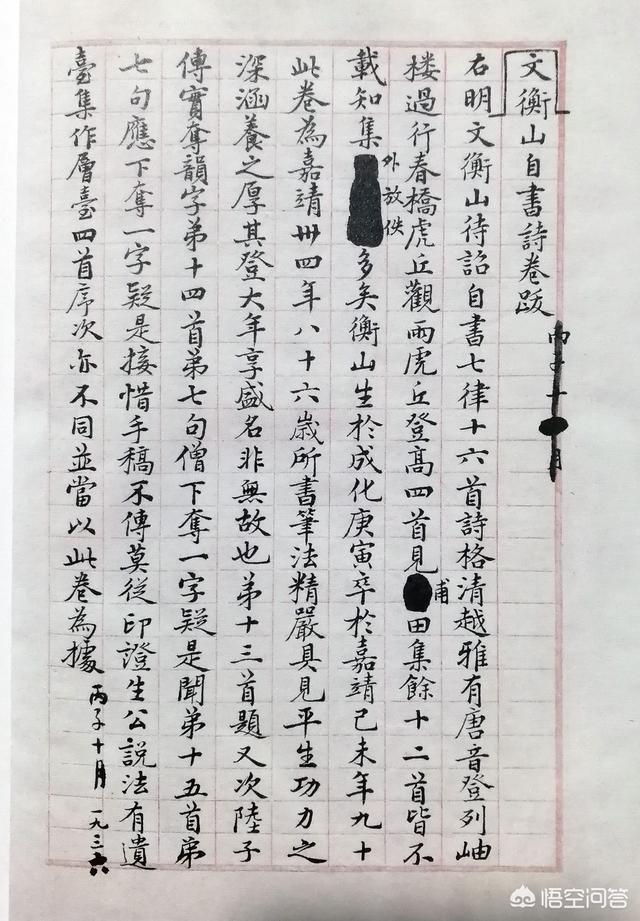 文衡山自書詩卷跋 丙子十月
右明文衡山待詔自書七律十六首詩格清越雅有唐音登列岫
楼過行春橋虎丘觀雨虎丘登高四首見甫田集餘十二首皆不
載知集外放佚多矣衡山生於成化庚寅卒於嘉靖己未年九十
此卷為嘉靖卅四年八十六歲所書筆法精嚴具見平生功力之
深涵養之厚其登大年享盛名非無故也弟十三首題又次陸子
傳實奪韻字弟十四首弟七句僧下奪一字疑是聞弟十五首弟
七句應下奪一字疑是接惜手稿不傳莫從印證生公說法有遺
臺集作層臺四首序次亦不同並當以此卷為據
丙子十月 一九三六
悟空问答